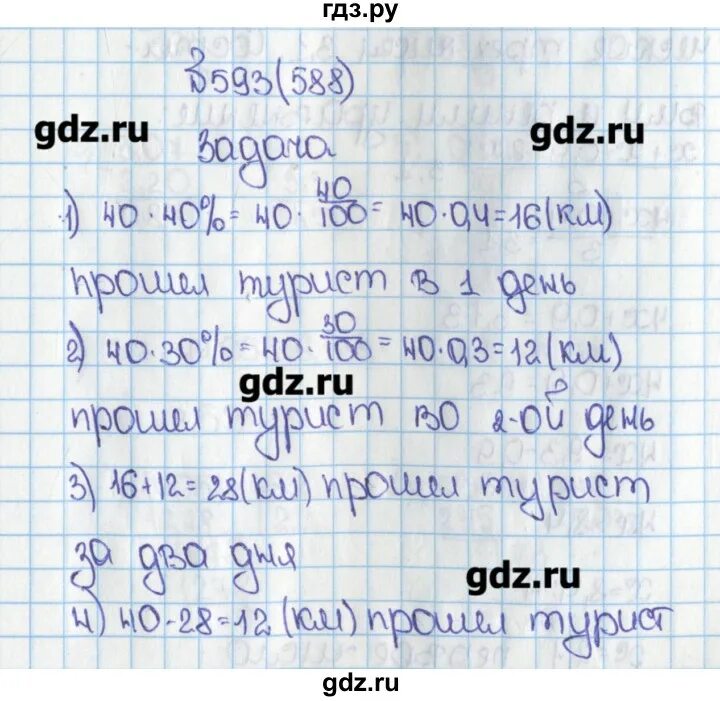 гдз.ру
№593(588)
gdz.ru
gdz.ru
Задача
1) 40·40%=40·40/100=40·0,4=16(км)
прошел турист в 1 день
2) 40·30%=40·30/100=40·0,3=12(км)
gdz.ru
прошел турист во 2-ой день
3) 16+12=28(км) прошел турист
за два дня
gdz.ru
4) 40-28=12(км) прошел турист
gdz.ru